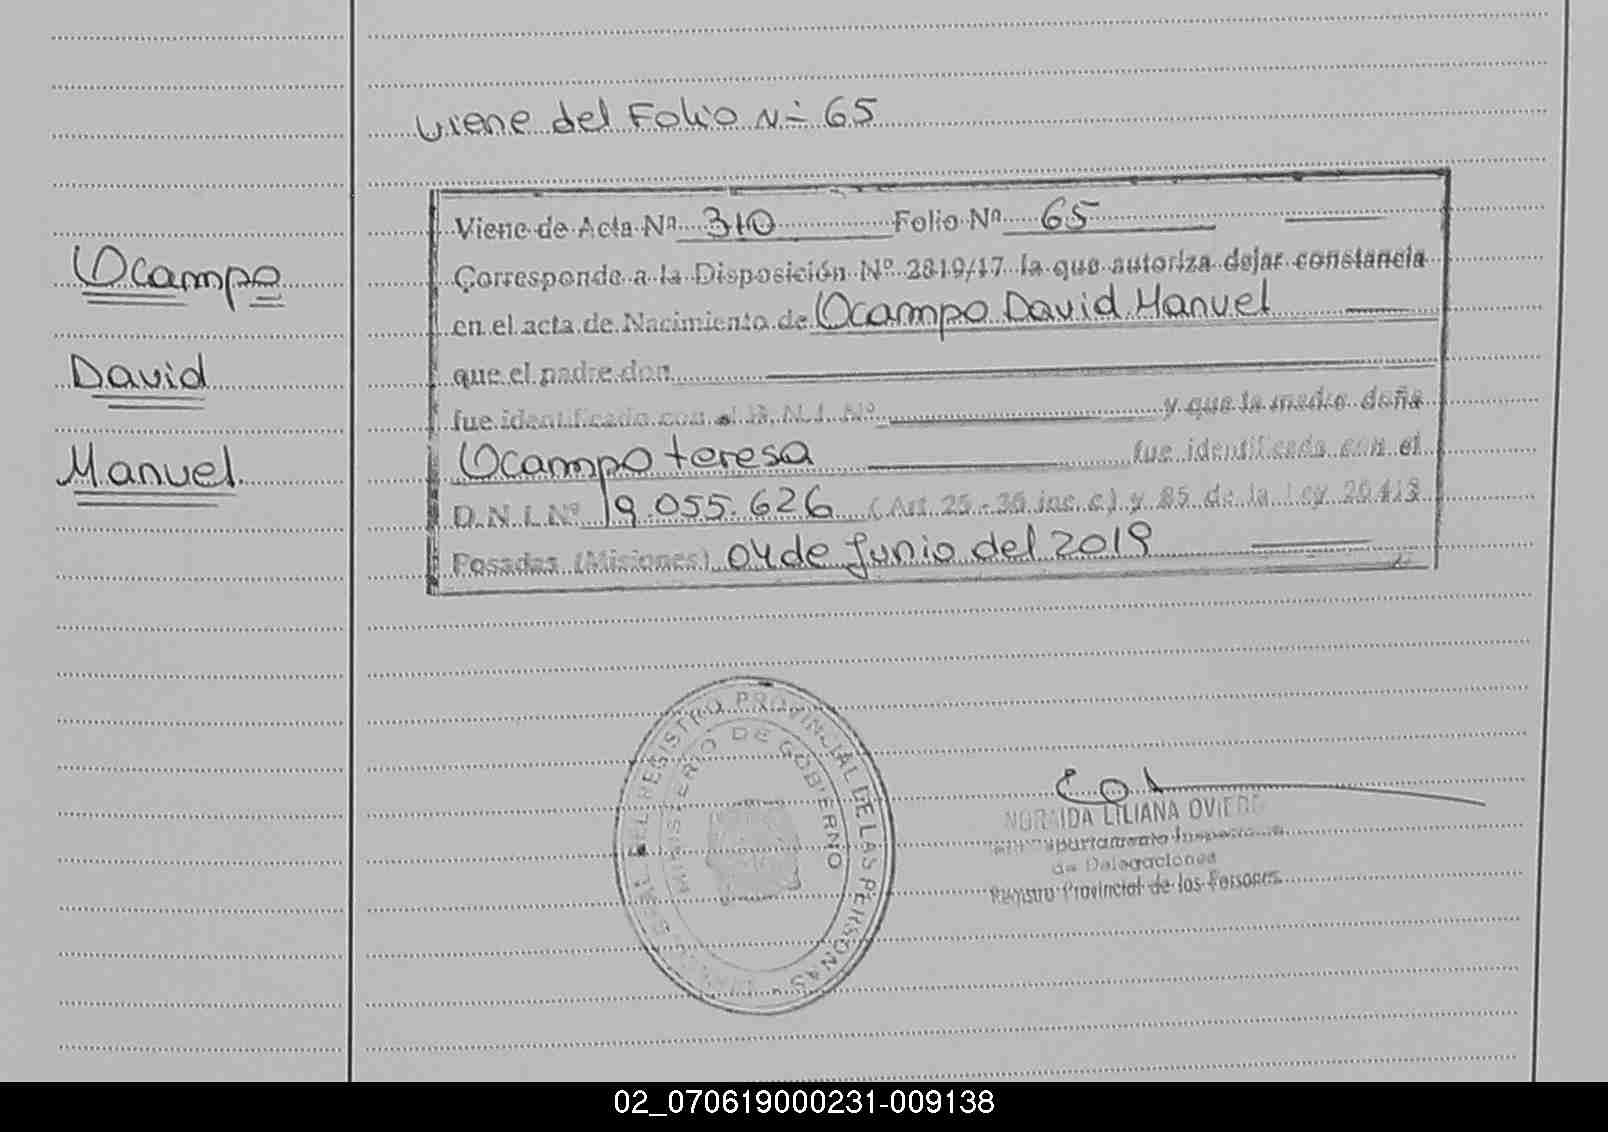 Viene del Folio Nº 65
Ocampo
David
Manuel
Viene de Acta Nº 310 Folio Nº 65
Corresponde a la Disposición Nº 2819/17 la que autoriza dejar constancia
en el acta de Nacimiento de Ocampo David Manuel
que el padre don
fue identificado con el D.N.I. Nº y que la madre doña
Ocampo teresa fue identificada con el
D.N.I. Nº 19.055.626 (Art. 25 - 36 inc. c) y 85 de la Ley 26.413
Posadas (Misiones) 04 de Junio del 2019
REGISTRO PROVINCIAL DE LAS PERSONAS
MINISTERIO DE GOBIERNO
NORAIDA LILIANA OVIEDO
Departamento
de Delegaciones
Registro Provincial de las Personas
02_070619000231-009138